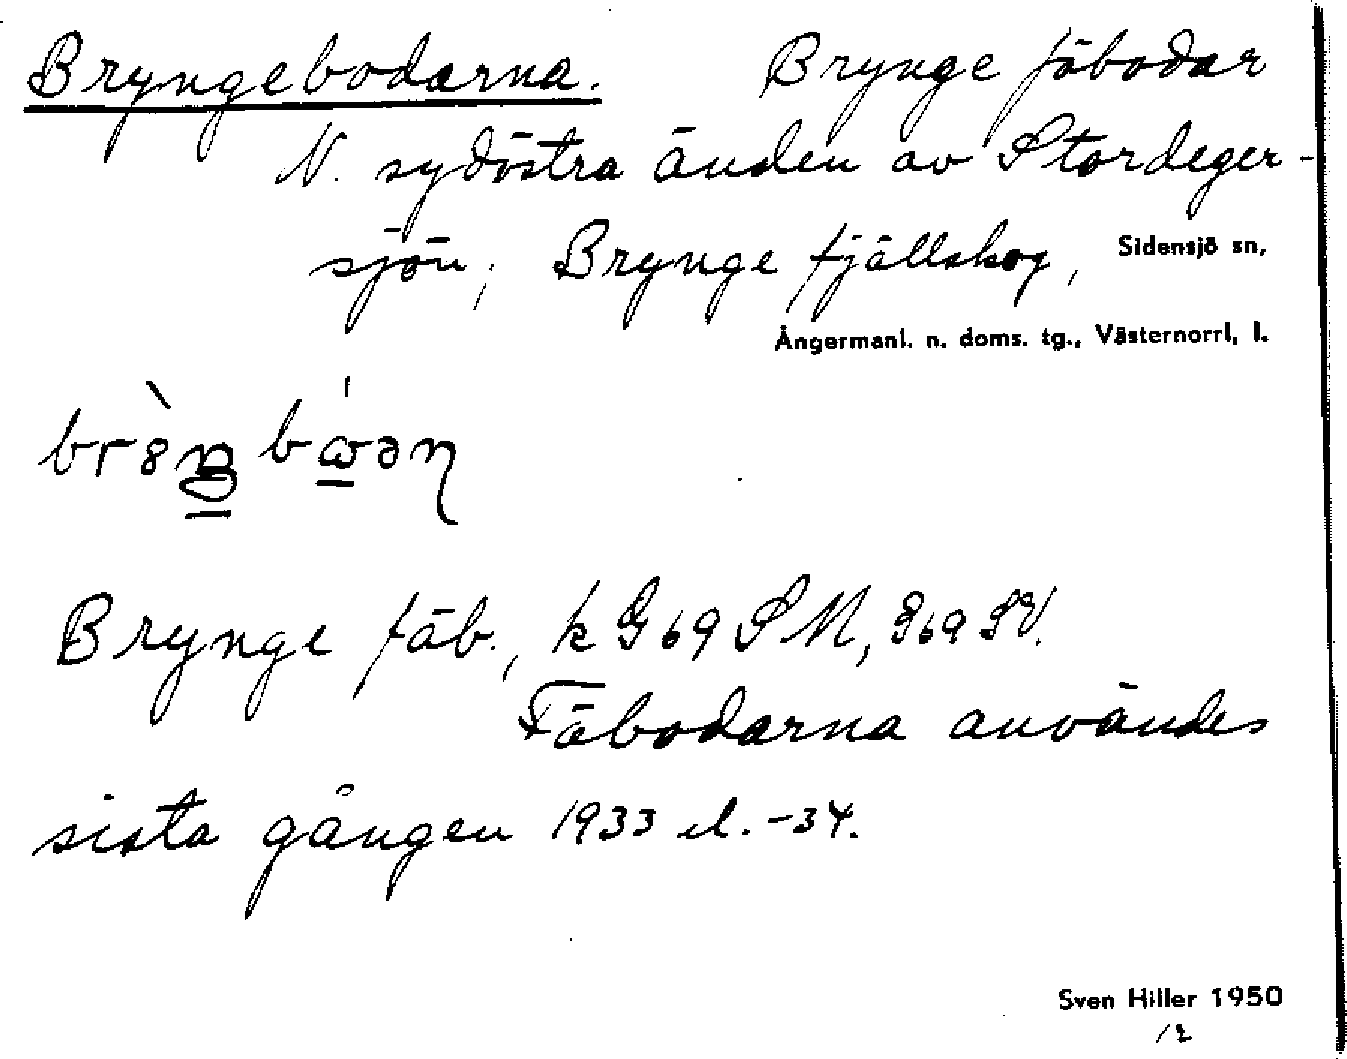 Bryngebodarna. Brynge fäbodar
N. sydöstra änden av Stordeger-
sjön; Brynge fjällskog, Sidensjö sn,
Ångermanl. n. doms. tg., Västernorrl. l.
Brynge fäb., k G69 SM, G69 SV.
Fäbodarna användes
sista gången 1933 el. -34.
Sven Hiller 1950
12